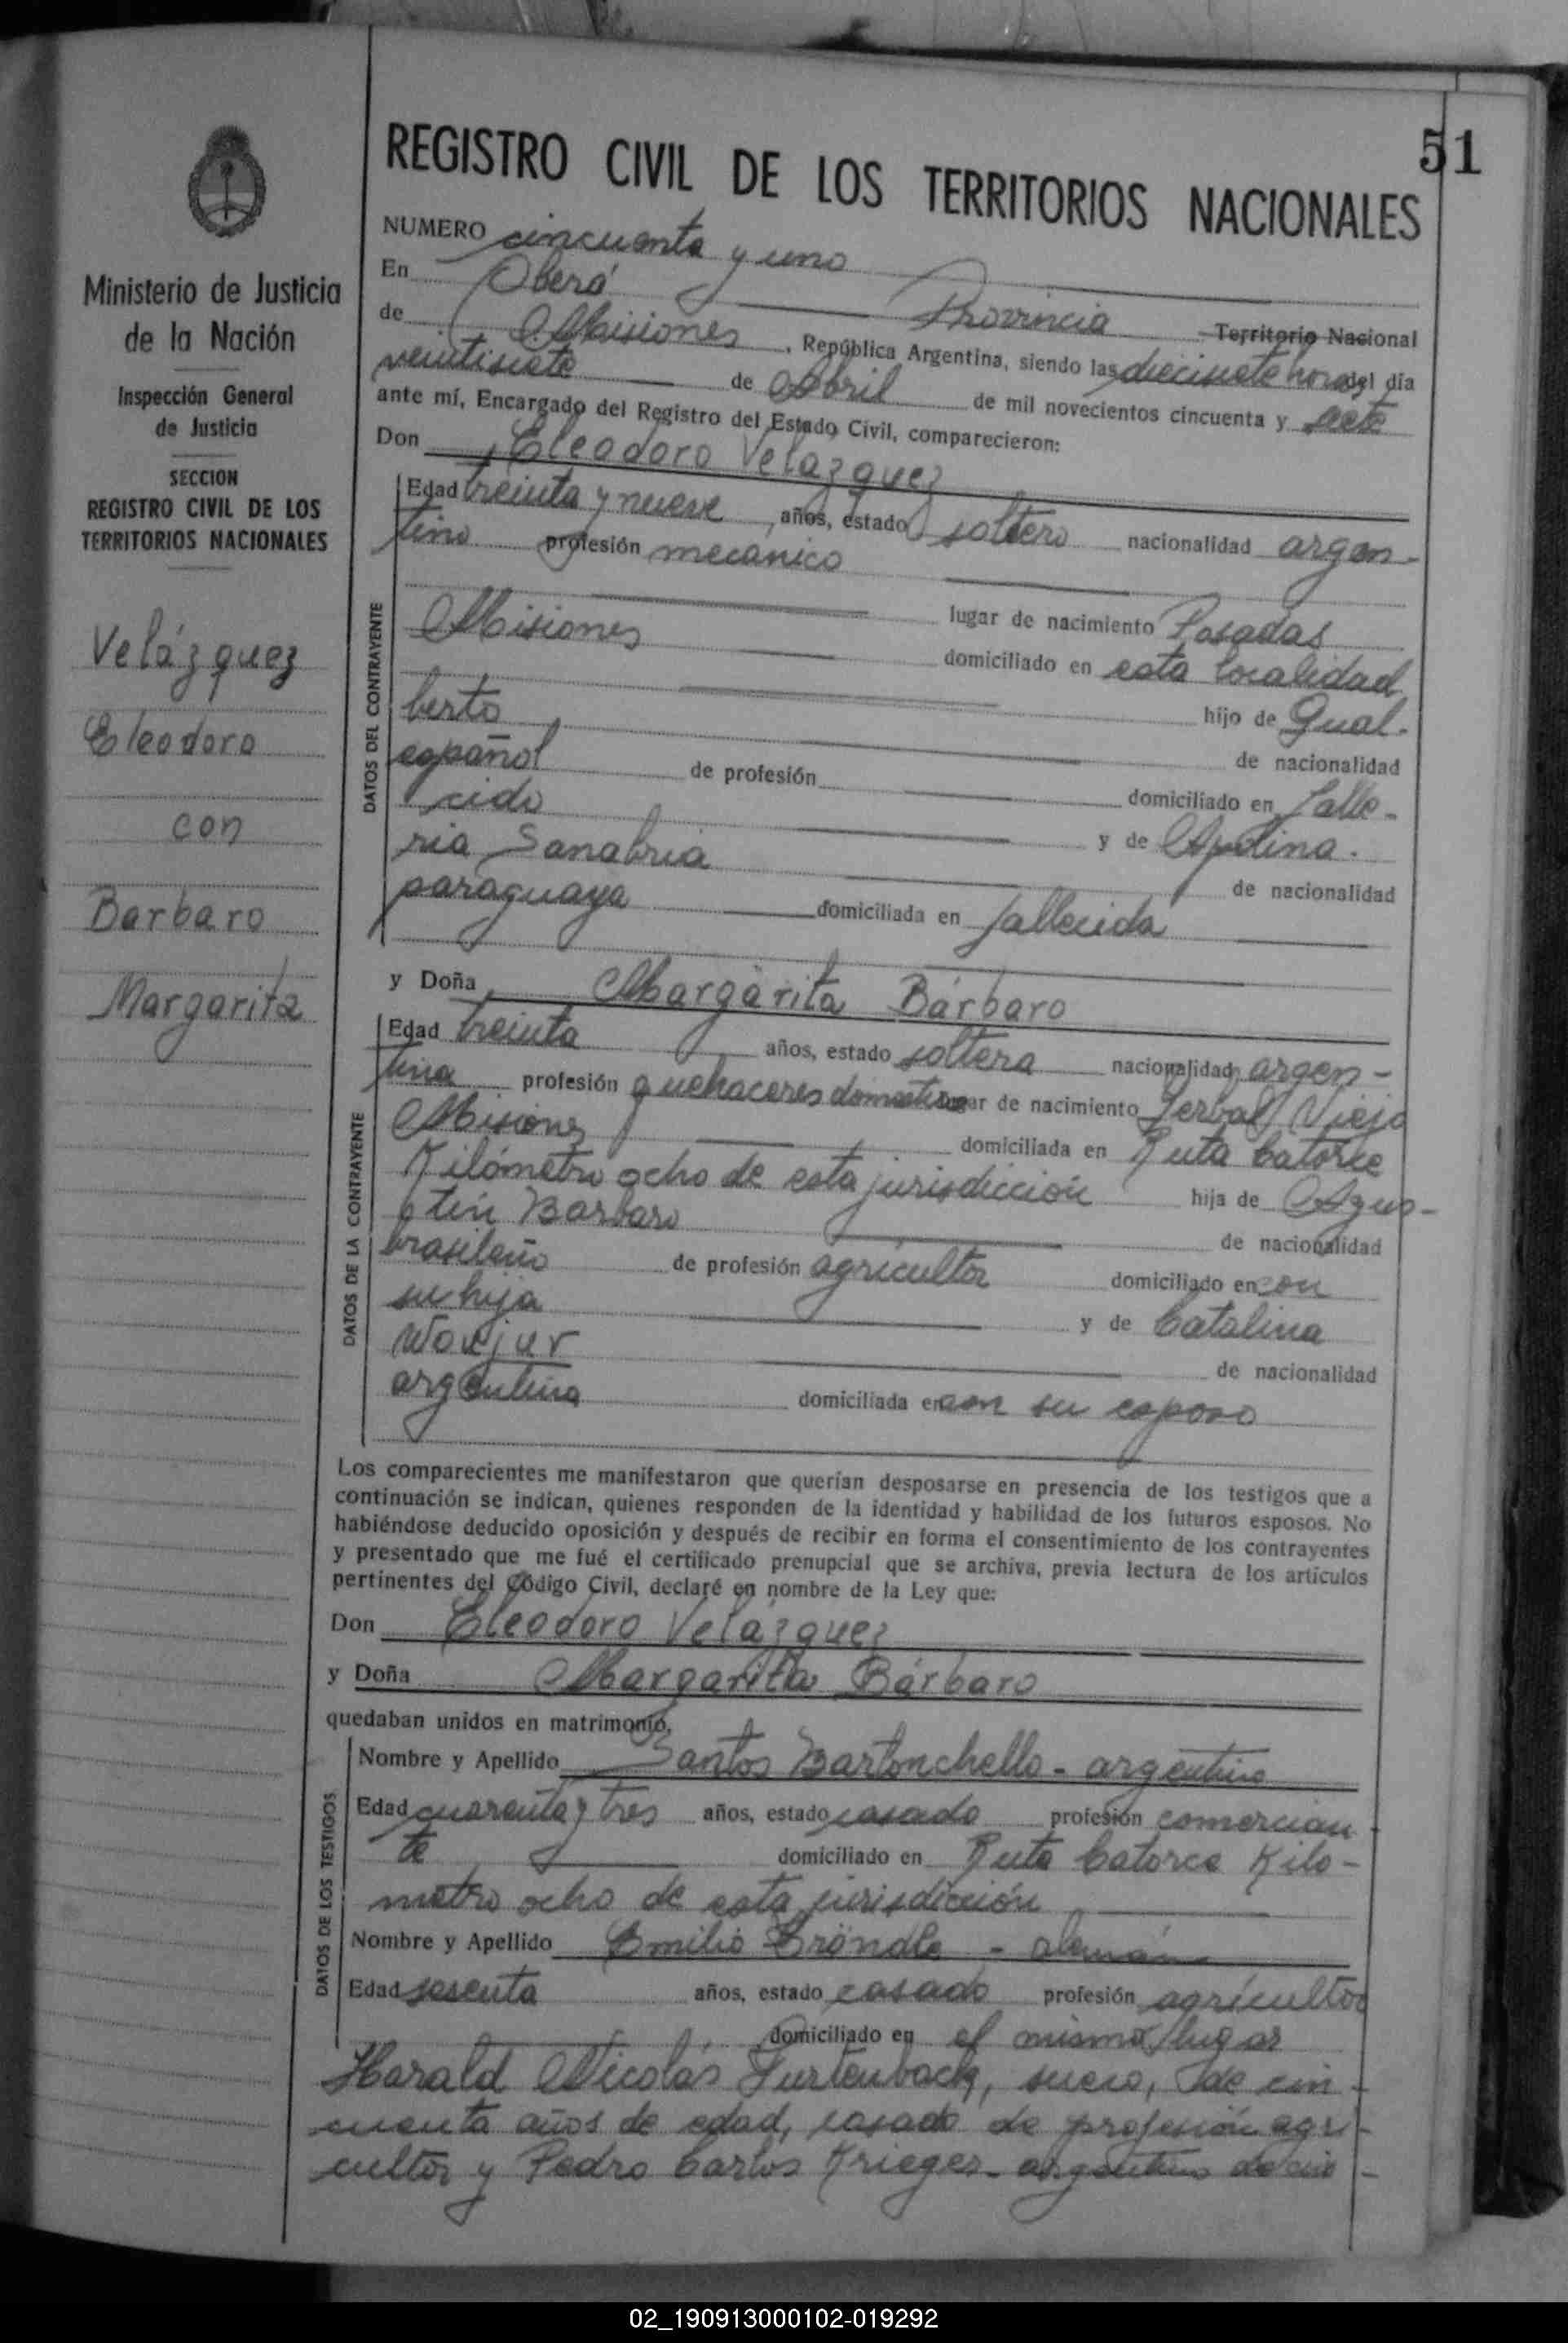 51
REGISTRO CIVIL DE LOS TERRITORIOS NACIONALES
Ministerio de Justicia
de la Nación
Inspección General
de Justicia
SECCION
REGISTRO CIVIL DE LOS
TERRITORIOS NACIONALES
Velázquez
Eleodoro
con
Barbaro
Margarita
NUMERO cincuenta y uno
En Oberá
de Misiones Provincia Territorio Nacional
, República Argentina, siendo las diecisiete horas del día
veintisiete de Abril de mil novecientos cincuenta y siete
ante mí, Encargado del Registro del Estado Civil, comparecieron:
Don Eleodoro Velazquez
DATOS DEL CONTRAYENTE
Edad treinta y nueve años, estado soltero nacionalidad argen-
tino profesión mecánico
lugar de nacimiento Posadas
Misiones domiciliado en esta localidad
hijo de Gual-
berto de nacionalidad
español de profesión domiciliado en falle-
cido y de Apolina-
ria Sanabria de nacionalidad
paraguaya domiciliada en fallecida
y Doña Margarita Bárbaro
DATOS DE LA CONTRAYENTE
Edad treinta años, estado soltera nacionalidad argen-
tina profesión quehaceres domesticos lugar de nacimiento Yerbal Viejo
Misiones domiciliada en Ruta Catorce
Kilómetro ocho de esta jurisdicción hija de Agus-
tín Barbaro de nacionalidad
brasileño de profesión agricultor domiciliado en con
su hija y de Catalina
de nacionalidad
argentina domiciliada en con su esposo
Los comparecientes me manifestaron que querían desposarse en presencia de los testigos que a
continuación se indican, quienes responden de la identidad y habilidad de los futuros esposos. No
habiéndose deducido oposición y después de recibir en forma el consentimiento de los contrayentes
y presentado que me fué el certificado prenupcial que se archiva, previa lectura de los artículos
pertinentes del Código Civil, declaré en nombre de la Ley que:
Don Eleodoro Velázquez
y Doña Margarita Bárbaro
quedaban unidos en matrimonio.
DATOS DE LOS TESTIGOS
Nombre y Apellido Santos Bartonchello - argentino
Edad cuarenta y tres años, estado casado profesión comercian-
te domiciliado en Ruta Catorce Kiló-
metro ocho de esta jurisdicción
Nombre y Apellido Emilio Bröndle - alemán
Edad sesenta años, estado casado profesión agricultor
domiciliado en el mismo lugar
Harald Nicolás Furtenback, sueco, de cin-
cuenta años de edad, casado de profesión agri-
cultor y Pedro Carlos Krieger - argentino de cin-
02_190913000102-019292